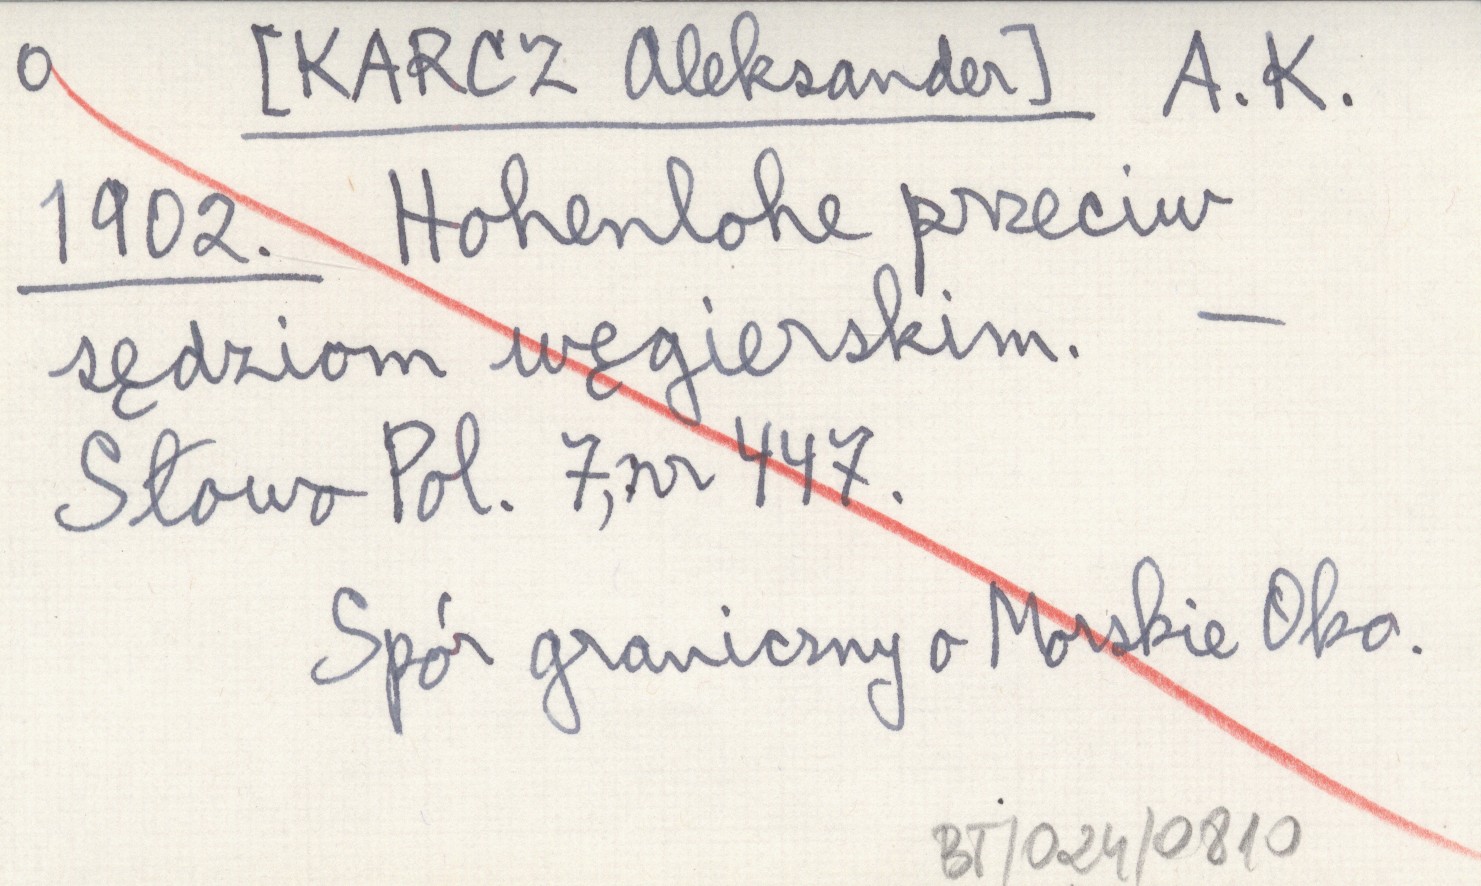 o [KARCZ Aleksander] A.K.
1902. Hohenlohe przeciw —
sędziom węgierskim.
Słowo Pol. 7, nr 447.
Spór graniczny o Morskie Oko.
BT/024/0810